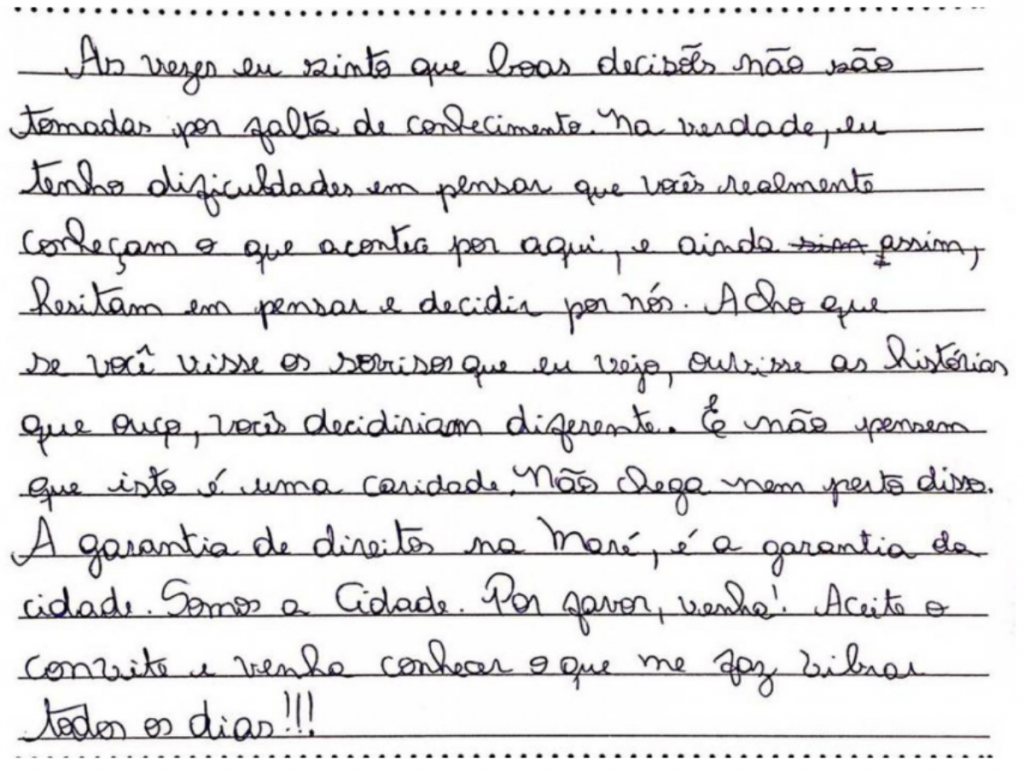 As vezes eu sinto que boas decisões não são
tomadas por falta de conhecimento. Na verdade, eu
tenho dificuldades em pensar que vocês realmente
conheçam o que acontece por aqui, e ainda sim assim,
hesitam em pensar e decidir por nós. Acho que
se você visse os sorrisos que eu vejo, ouvisse as histórias
que ouço, vocês decidiriam diferente. E não pensem
que isto é uma caridade. Não chega nem perto disso.
A garantia de direitos na Maré, é a garantia da
cidade. Somos a Cidade. Por favor, venha! Aceite o
convite e venha conhecer o que me faz vibrar
todos os dias!!!